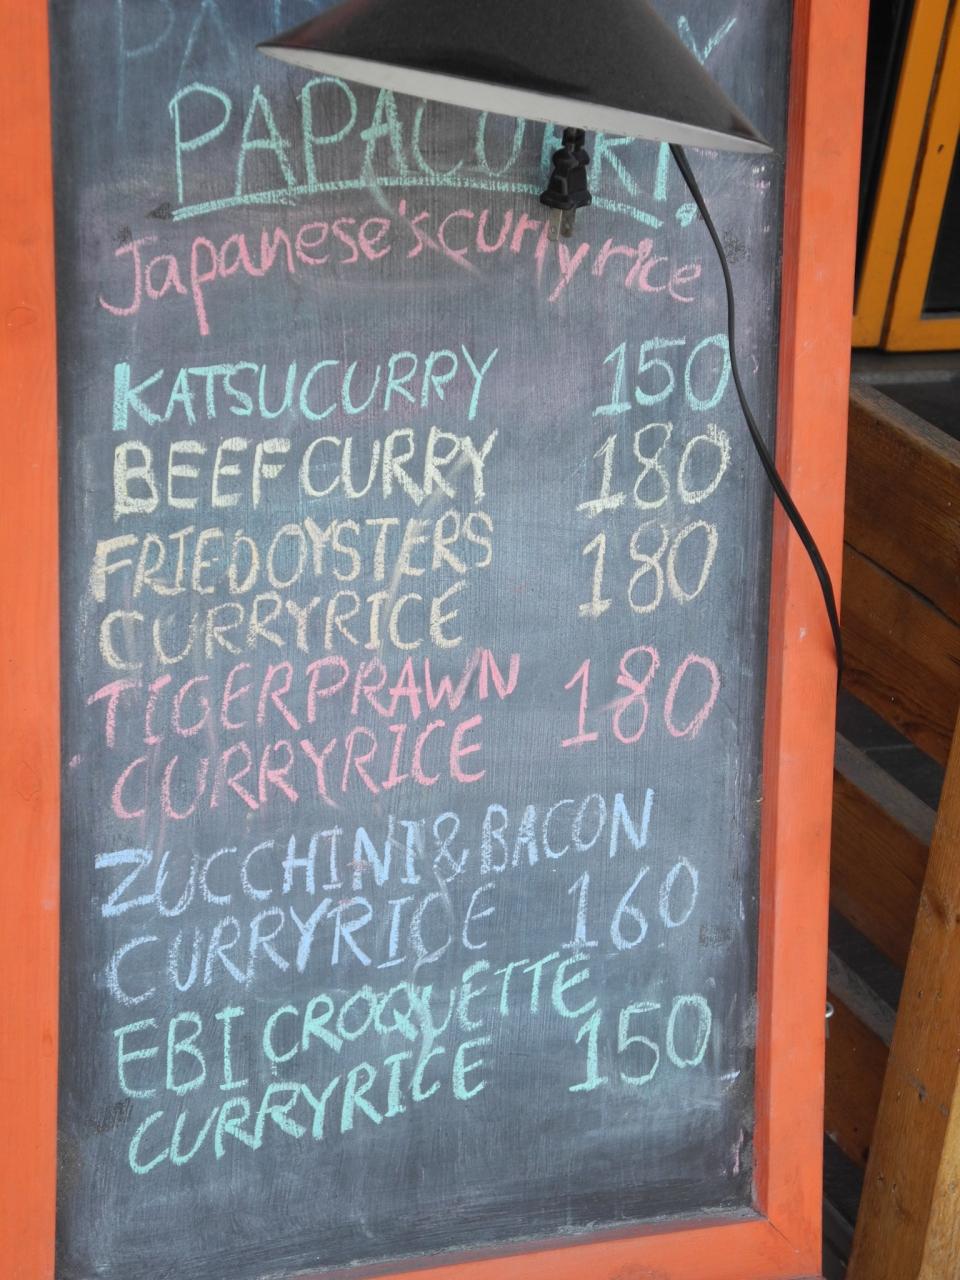 PAPACURRY
Japanese's curryrice
KATSUCURRY 150
BEEFCURRY 180
FRIEDOYSTERS
CURRYRICE 180
TIGERPRAWN
CURRYRICE 180
ZUCCHINI & BACON
CURRYRICE 160
EBI CROQUETTE
CURRYRICE 150